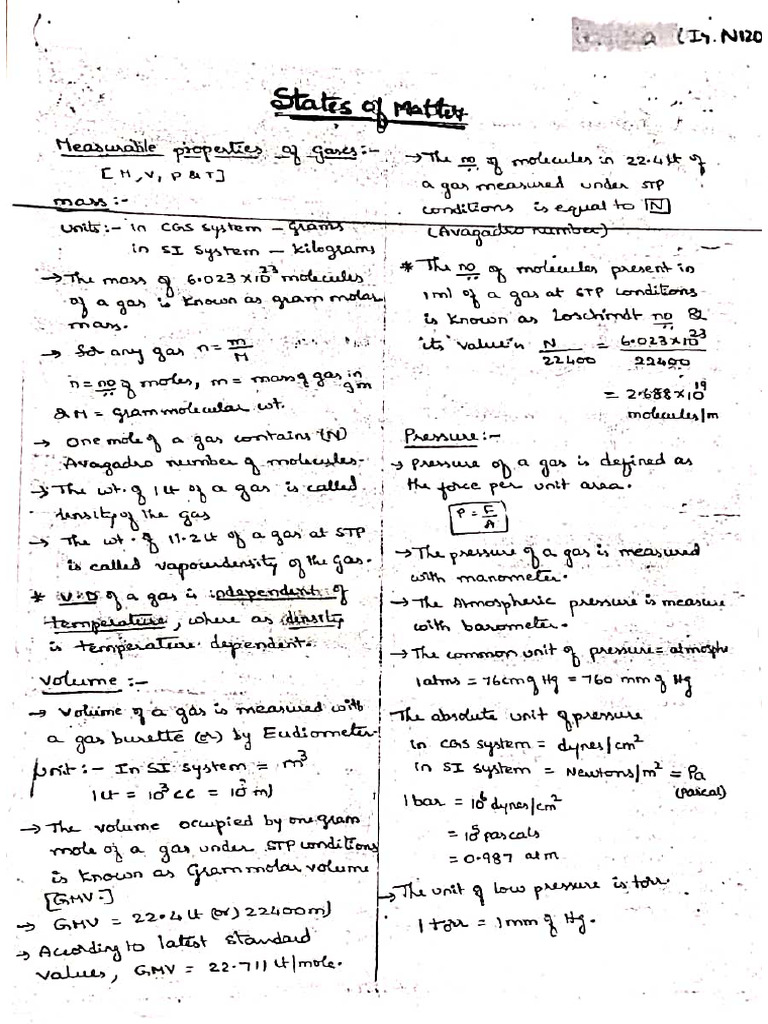 (Ir. N120
States of Matter
Measurable properties of gases:-
[M, V, P & T]
mass:-
Units:- in CGS system - Grams
in SI System - Kilograms
→ The mass of 6.023 × 10²³ molecules
of a gas is known as gram molar
mass.
→ for any gas n = m/M
n = no of moles, m = mass of gas in gm
& M = Gram molecular wt.
→ One mole of a gas contains (N)
Avagadro number of molecules.
→ The wt. of 1 lt of a gas is called
density of the gas
→ The wt. of 11.2 lt of a gas at STP
is called vapour density of the Gas.
* V.D of a gas is independent of
temperature, where as density
is temperature dependent.
Volume :-
→ Volume of a gas is measured with
a gas burette (or) by Eudiometer
Unit :- In SI system = m³
1 lt = 10³ cc = 10³ ml
→ The volume occupied by one gram
mole of a gas under STP conditions
is known as Gram molar volume
[GMV:]
→ GMV = 22.4 lt (or) 22400 ml
→ According to latest standard
values, GMV = 22.711 lt/mole.
→ The no of molecules in 22.4 lt of
a gas measured under STP
conditions is equal to N
(Avagadro number)
* The no of molecules present in
1 ml of a gas at STP conditions
is known as Loschimdt no &
its value is N/22400 = 6.023×10²³/22400
= 2.688×10¹⁹
molecules/m
Pressure:-
→ Pressure of a gas is defined as
the force per unit area.
P = F/A
→ The pressure of a gas is measured
with manometer.
→ The Atmospheric pressure is measure
with barometer.
→ The common unit of pressure = atmosphe
1 atms = 76 cm of Hg = 760 mm of Hg
The absolute unit of pressure
in CGS system = dynes/cm²
in SI system = Newtons/m² = Pa
(Pascal)
1 bar = 10⁶ dynes/cm²
= 10⁵ pascals
= 0.987 atm
→ The unit of low pressure is torr
1 torr = 1 mm of Hg.